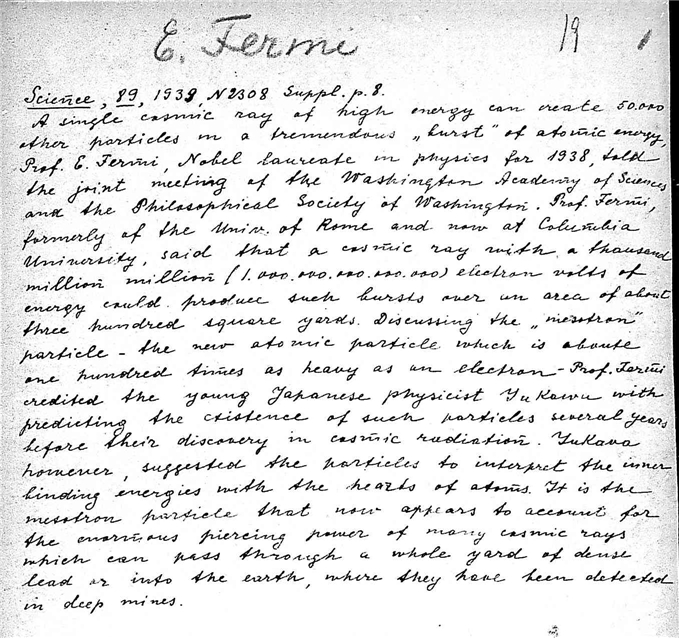 E. Fermi
19
Science, 89, 1939, N2308 Suppl. p. 8.
A single cosmic ray of high energy can create 50.000
other particles in a tremendous „burst" of atomic energy,
Prof. E. Fermi, Nobel laureate in physics for 1938, told
the joint meeting of the Washington Academy of Sciences
and the Philosophical Society of Washington. Prof. Fermi,
formerly of the Univ. of Rome and now at Columbia
University, said that a cosmic ray with a thousand
million million (1.000.000.000.000.000) electron volts of
energy could produce such bursts over an area of about
three hundred square yards. Discussing the „mesotron"
particle - the new atomic particle which is aboute
one hundred times as heavy as an electron - Prof. Fermi
credited the young Japanese physicist Yukawa with
predicting the existence of such particles several years
before their discovery in cosmic radiation. Yukava
however, suggested the particles to interpret the inner
binding energies with the hearts of atoms. It is the
mesotron particle that now appears to account for
the enormous piercing power of many cosmic rays
which can pass through a whole yard of dense
lead or into the earth, where they have been detected
in deep mines.